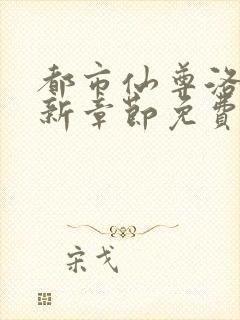 都市仙尊洛
新章节免费
宋戈